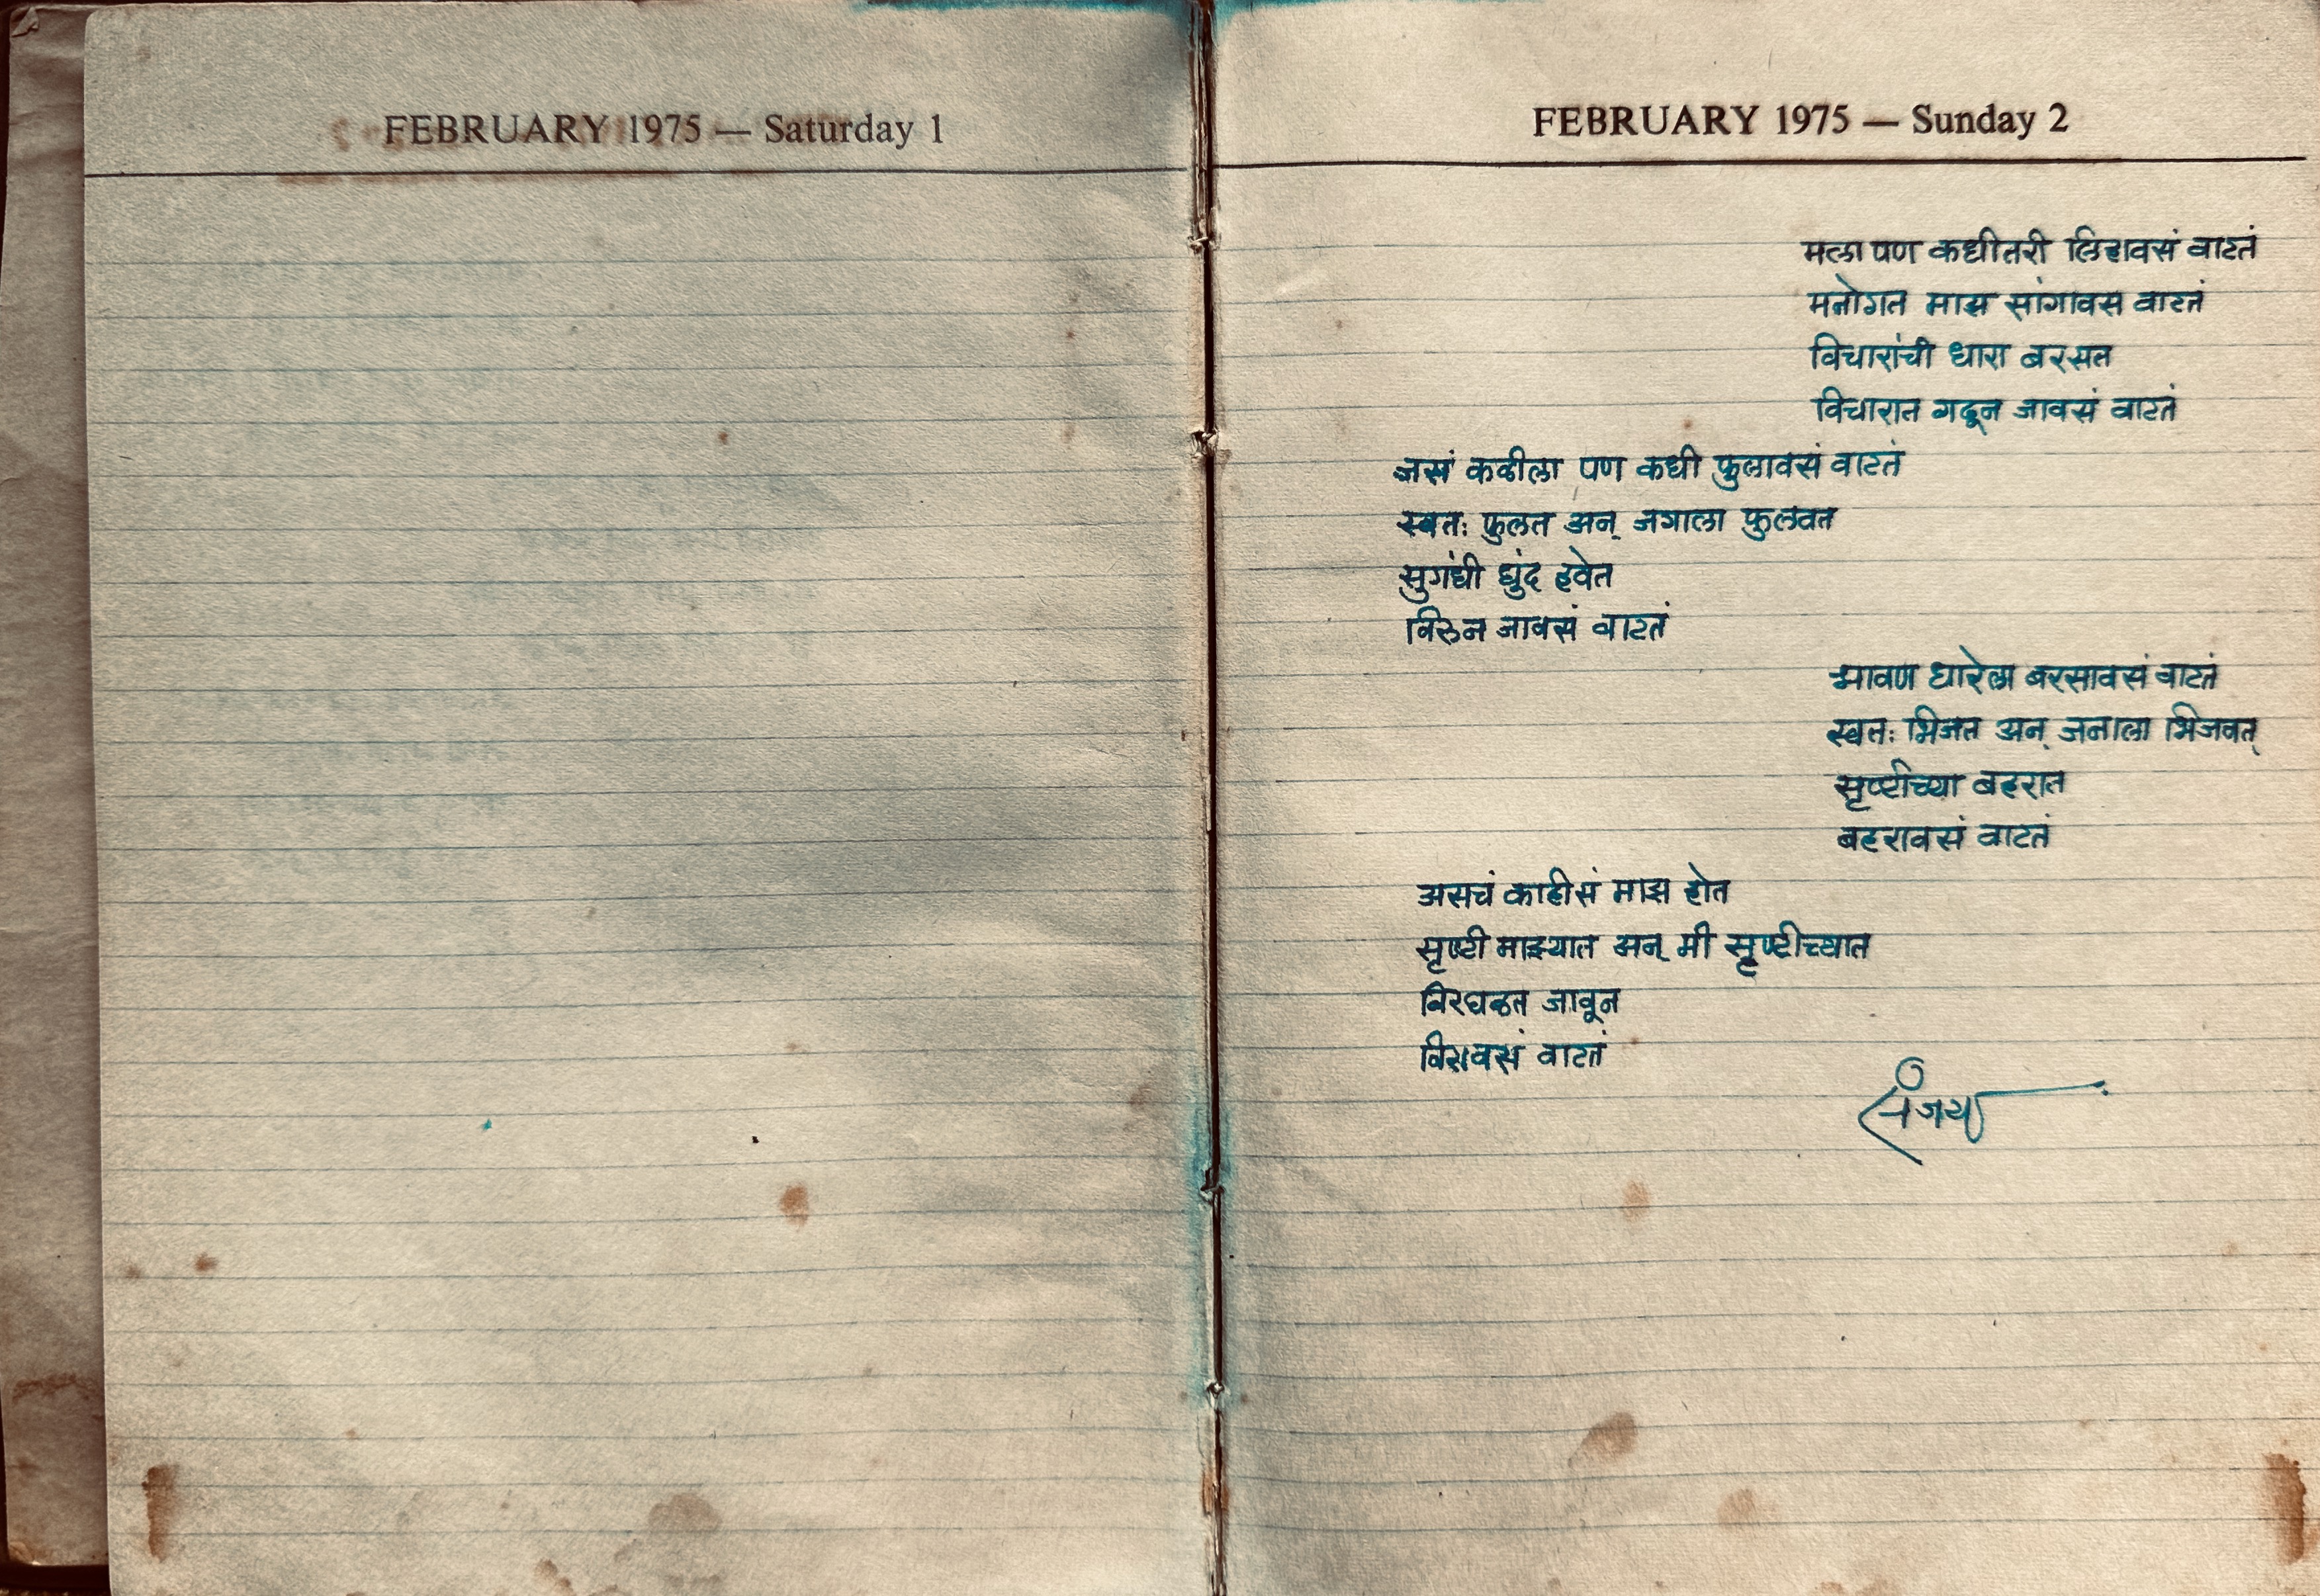 FEBRUARY 1975 — Saturday 1
FEBRUARY 1975 — Sunday 2
मला पण कधीतरी लिहावसं वाटतं
मनोगत माझ सांगावस वाटतं
विचारांची धारा बरसत
विचारात गढून जावसं वाटतं
जसं कळीला पण कधी फुलावसं वाटतं
स्वतः फुलत अन् जगाला फुलवत
सुगंधी धुंद हवेत
विरुन जावसं वाटतं
श्रावण धारेला बरसावसं वाटतं
स्वतः भिजत अन् जनाला भिजवत्
सृष्टीच्या बहरात
बहरावसं वाटतं
असचं काहीसं माझ होत
सृष्टी माझ्यात अन् मी सृष्टीच्यात
विरघळत जावून
विरावसं वाटतं
संजय